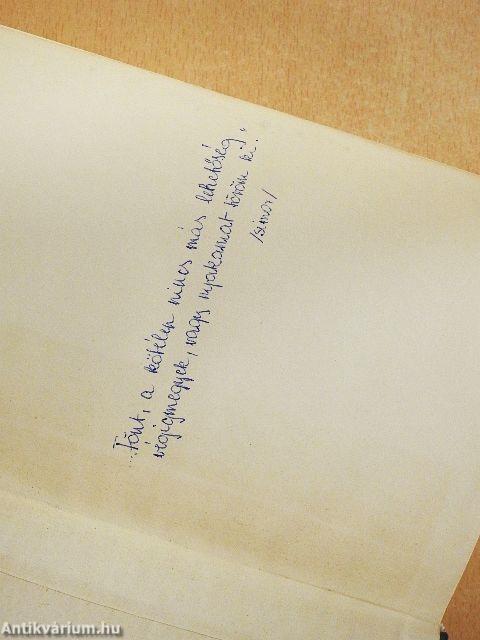 ...Fönt, a kötélen nincs más lehetőség,
végigmegyek, vagy nyakamat töröm ki!
/Simor/
Antikvárium.hu